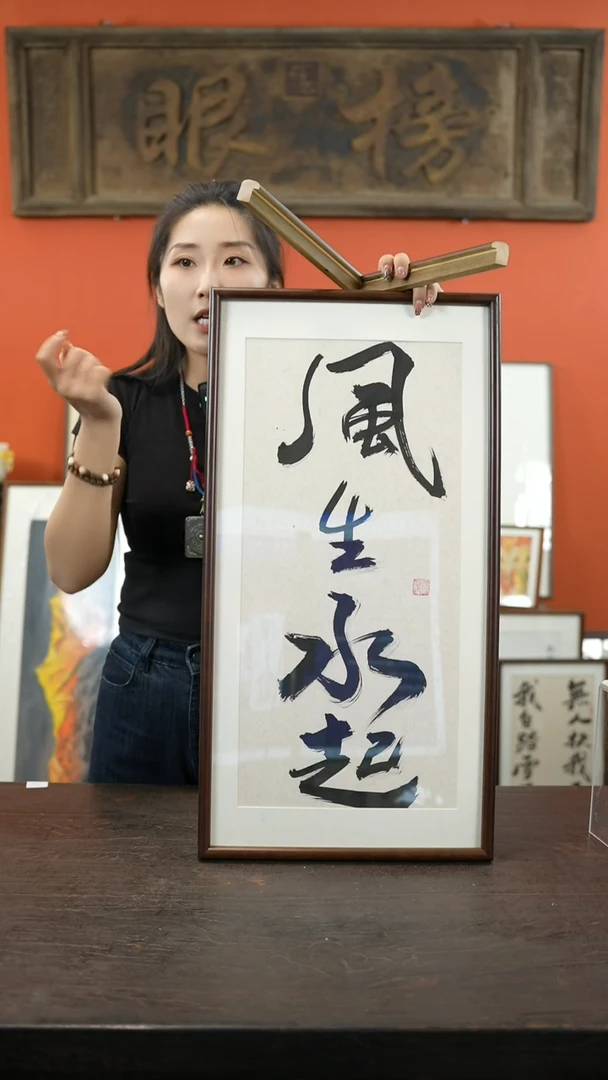 榜眼
風生水起
無人扶我
我自踏雪